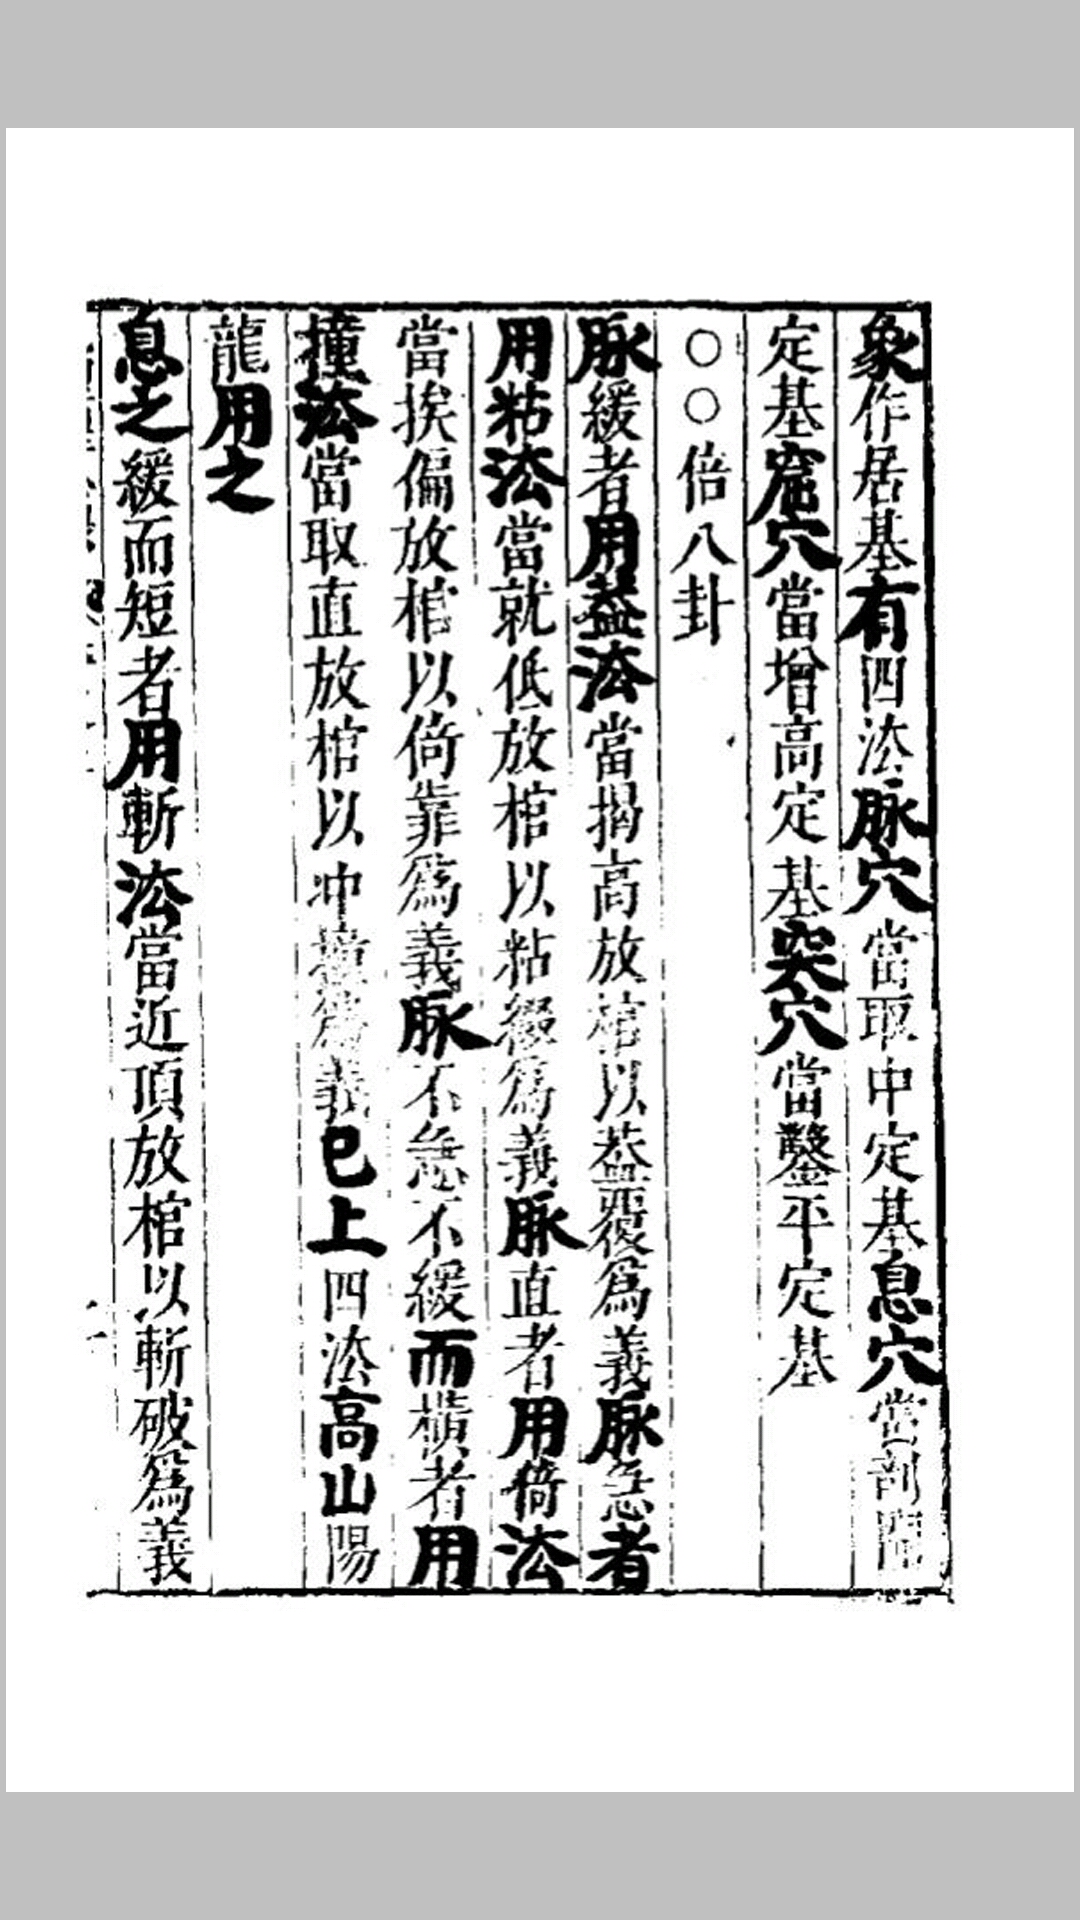 象作居基有四法脉穴當取中定基息穴當剖開
定基窟穴當增高定基突穴當鑿平定基
○○倍八卦
脉緩者用葢法當揭高放棺以葢覆爲義脉急者
用粘法當就低放棺以粘綴爲義脉直者用倚法
當挨偏放棺以倚靠爲義脉不急不緩而橫者用
撞法當取直放棺以冲撞爲義已上四法高山陽
龍用之
息之緩而短者用斬法當近頂放棺以斬破爲義